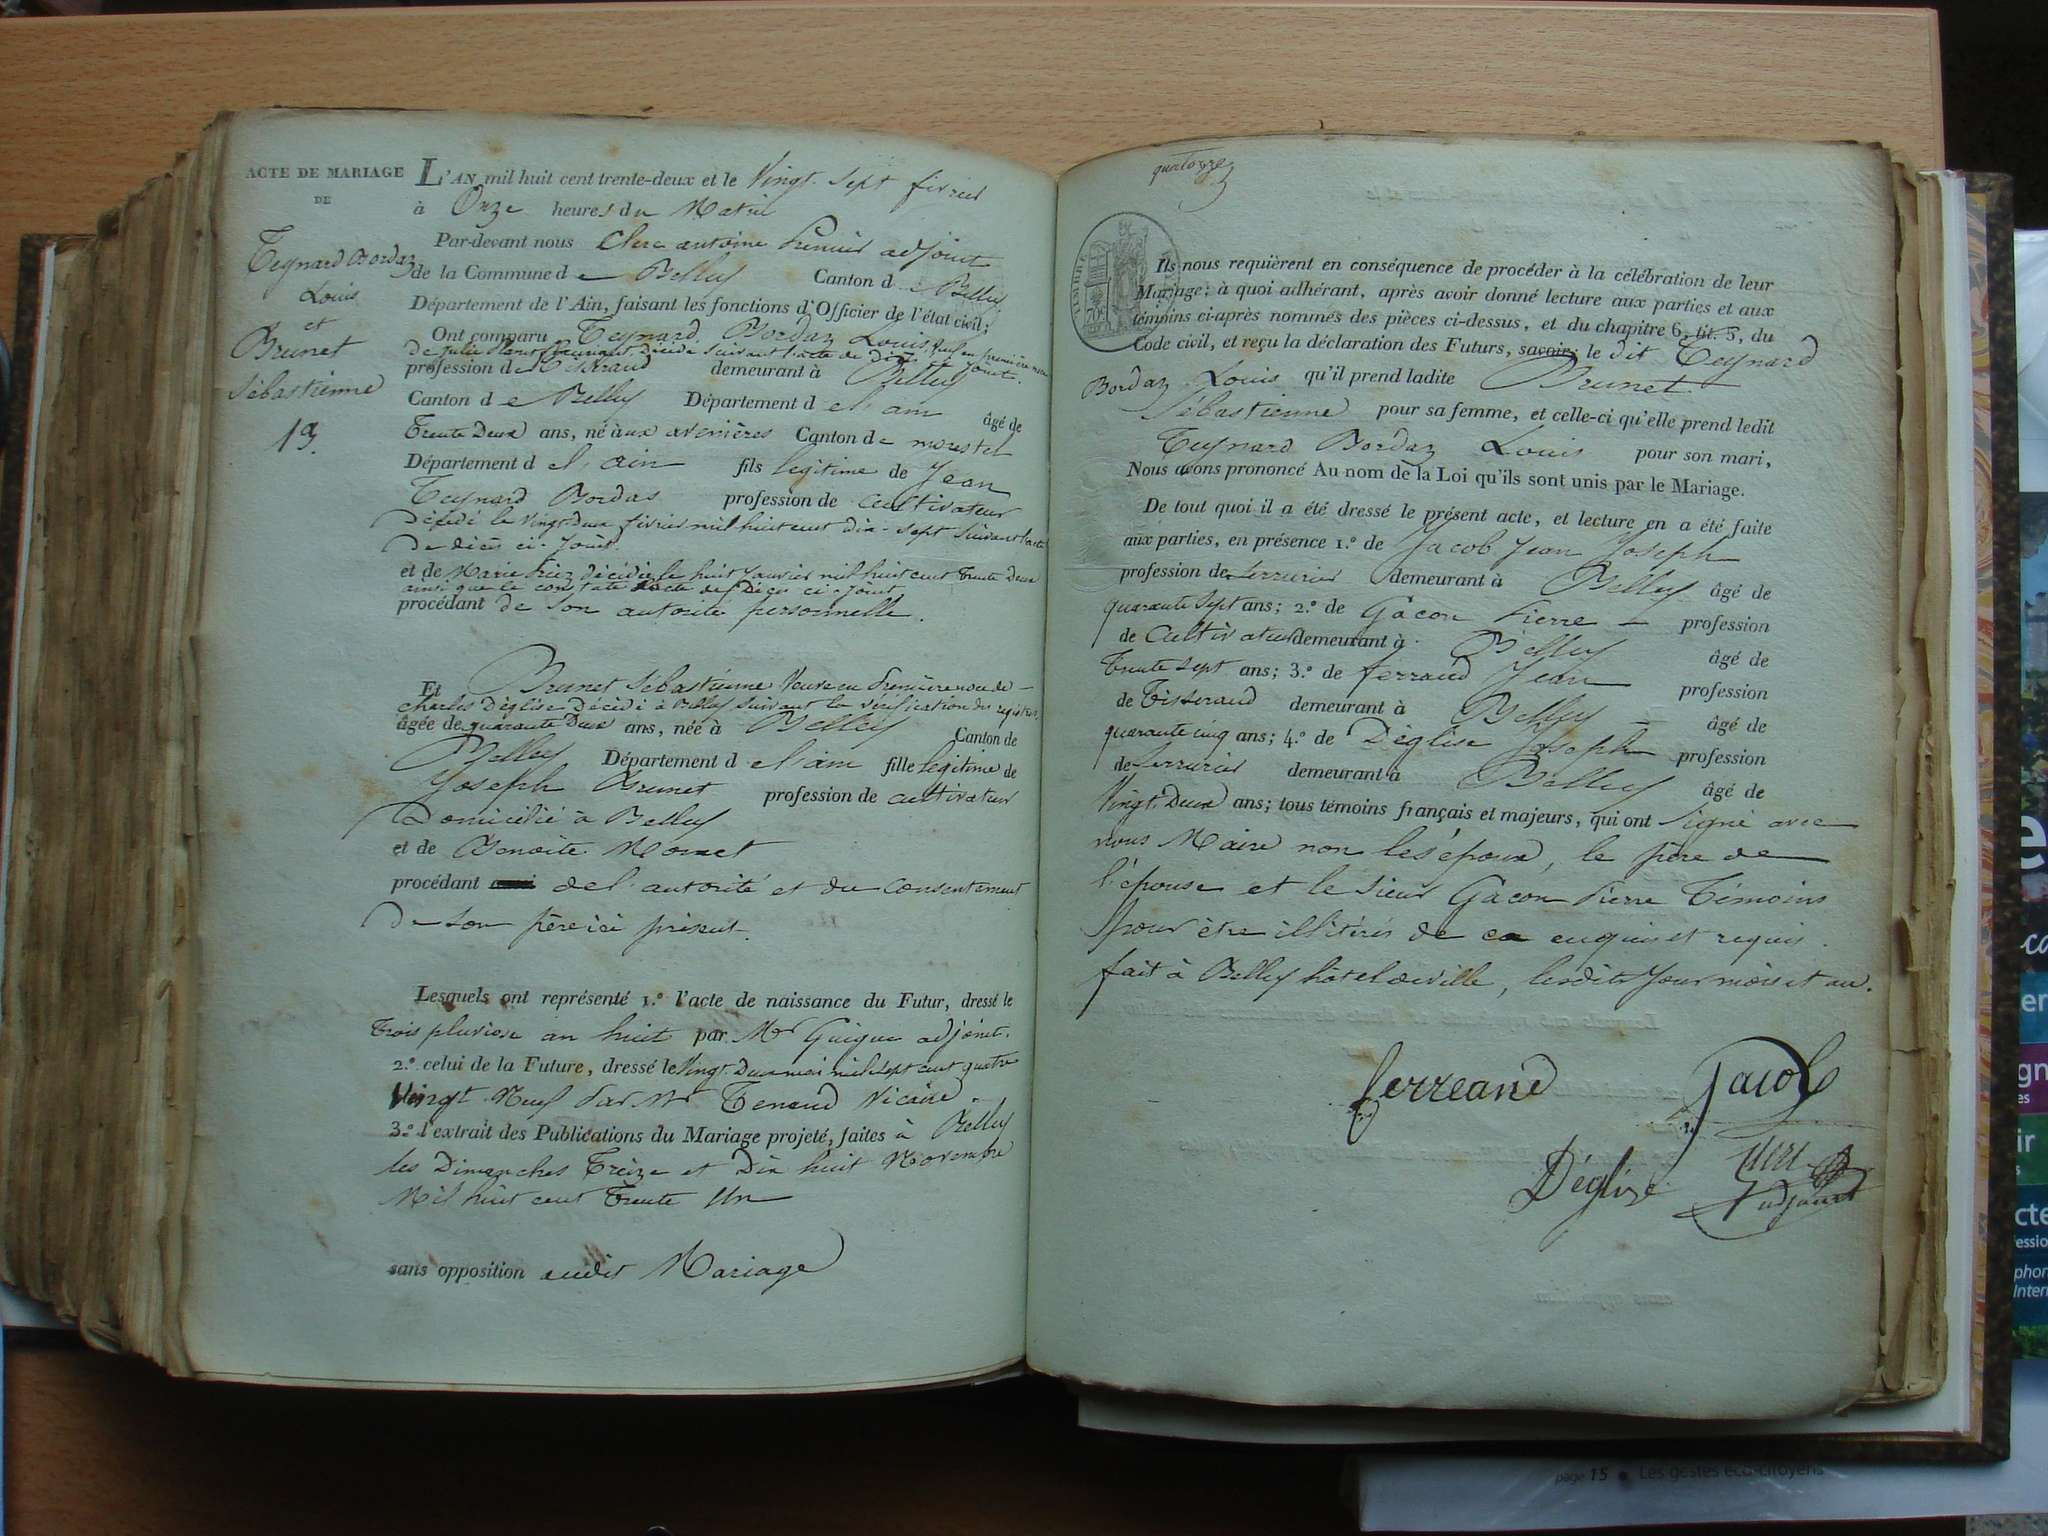 ACTE DE MARIAGE
DE
Teynard Bordaz
Louis
et
Brunet
Sébastienne
13.
L'AN mil huit cent trente-deux et le Vingt-sept fevrier
à Onze heures du Matin
Par-devant nous Clerc antoine Premier adjoint
de la Commune de Belley Canton de Belley
Département de l'Ain, faisant les fonctions d'Officier de l'état civil;
Ont comparu Teynard Bordaz Louis Veuf en première noce
de Julie décédée suivant l'acte de Décès ci joint.
profession de Tisserand demeurant à Belley
Canton de Belley Département de l'ain âgé de
Trente Deux ans, né aux avenières Canton de morestel
Département de l'ain fils legitime de Jean
Teynard Bordas profession de Cultivateur
Décédé le vingt Deux fevrier mil huit cent dix-sept suivant l'acte
de décès ci-joint.
et de Marie décédée le huit Janvier mil huit cent trente Deux
ainsi que le constate l'acte de Décès ci-joint,
procédant de son autorité personnelle.
Et Brunet Sebastienne Veuve en Première noce de
charles Déglise Décédé à Belley suivant la vérification des registres
âgée de quarante Deux ans, née à Belley Canton de
Belley Département de l'ain fille legitime de
Joseph Brunet profession de cultivateur
Domicilié à Belley
et de Benoite Monnet
procédant de l'autorité et du Consentement
de son père ici présent.
Lesquels ont représenté 1.º l'acte de naissance du Futur, dressé le
Trois pluviose an huit par Mr Guigue adjoint.
2.º celui de la Future, dressé le Vingt Deux mai mil sept cent quatre
Vingt Neuf Par Mr Tenand Vicaire.
3.º l'extrait des Publications du Mariage projeté, faites à Belley
les Dimanches Treize et Dix huit Novembre
Mil huit cent Trente Un
sans opposition audit Mariage
quatorze
TIMBRE
70c
Ils nous requièrent en conséquence de procéder à la célébration de leur
Mariage; à quoi adhérant, après avoir donné lecture aux parties et aux
témoins ci-après nommés des pièces ci-dessus, et du chapitre 6, tit. 5, du
Code civil, et reçu la déclaration des Futurs, savoir: le dit Teynard
Bordaz Louis qu'il prend ladite Brunet
Sébastienne pour sa femme, et celle-ci qu'elle prend ledit
Teynard Bordaz Louis pour son mari,
Nous avons prononcé Au nom de la Loi qu'ils sont unis par le Mariage.
De tout quoi il a été dressé le présent acte, et lecture en a été faite
aux parties, en présence 1.º de Jacob Jean Joseph
profession de Serrurier demeurant à Belley âgé de
quarante sept ans; 2.º de Gacon Pierre profession
de Cultivateur demeurant à Belley âgé de
Trente sept ans; 3.º de ferrand Jean profession
de Tisserand demeurant à Belley âgé de
quarante cinq ans; 4.º de Déglise Joseph profession
de Serrurier demeurant à Belley âgé de
Vingt-Deux ans; tous témoins français et majeurs, qui ont signé avec
nous Maire non les époux, le père de
l'épouse et le Sieur Gacon Pierre Témoins
pour être illitérés de ce enquis et requis.
fait à Belley hôtel de ville, lesdits Jour mois et an.
ferreand Jacob
Déglise Clerc
adjoint
page 15 • Les gestes éco-citoyens